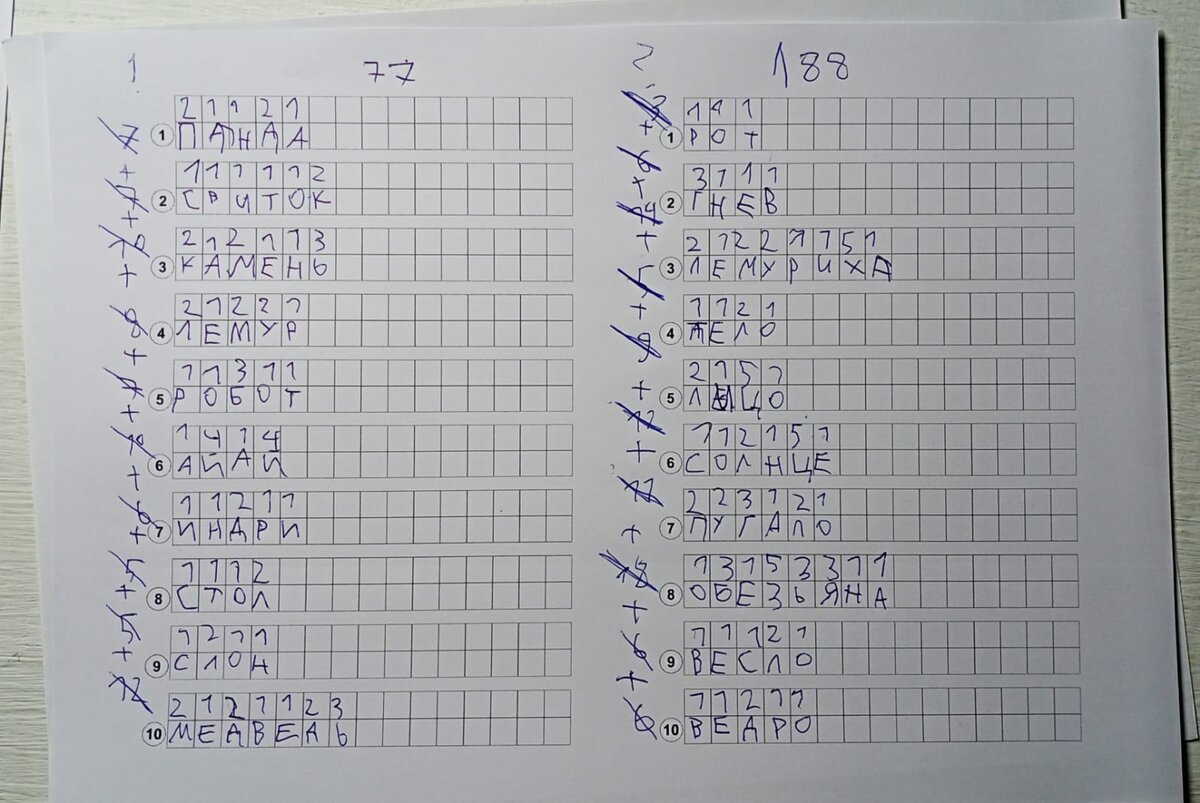 1 77
7 + 2 1 1 2 1
1 ПАНДА
1 1 1 1 1 2
2 СВИТОК
2 1 2 1 1 3
3 КАМЕНЬ
8 2 1 2 2 1
4 ЛЕМУР
1 1 3 1 1
5 РОБОТ
1 4 1 4
6 АЙАЙ
6 1 1 2 1 1
7 ИНДРИ
5 1 1 1 2
8 СТОЛ
5 1 2 1 1
9 СЛОН
12 2 1 2 1 1 2 3
10 МЕДВЕДЬ
2 188
3 1 1 1
1 РОТ
6 3 1 1 1
2 ГНЕВ
14 2 1 2 2 1 1 5 1
3 ЛЕМУРИХА
5 1 1 2 1
4 ТЕЛО
9 2 1 5 1
5 ЛИЦО
11 1 1 2 1 5 1
6 СОЛНЦЕ
11 2 2 3 1 2 1
7 ПУГАЛО
18 1 3 1 5 3 3 1 1
8 ОБЕЗЬЯНА
6 1 1 1 2 1
9 ВЕСЛО
6 1 1 2 1 1
10 ВЕДРО